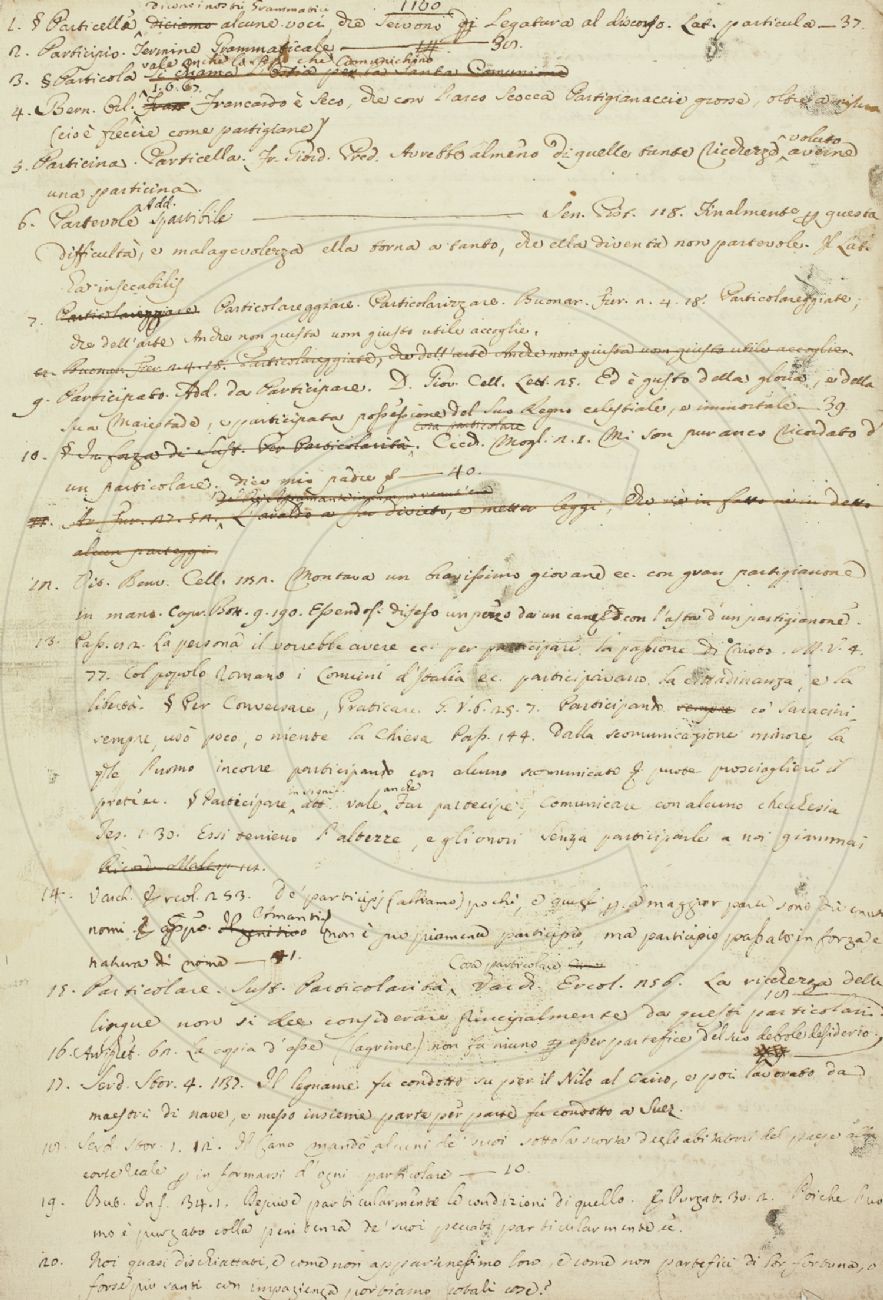 1160
Dicono i nostri Grammatici
1. § Particella, diciamo alcune voci che servono di legatura al discorso. Lat. particula — 37.
2. Participio. Termine Grammaticale — 38.
vale anche lo che Comunichino
3. § Particola si chiama per la Santa Comunione
1. 6. 67.
4. Bern. Orl. Francardo è seco, che con l'arco scocca Partigianaccie grosse, oltre a misura
(cioè freccie come partigiane)
5. Particina. Particella. Fr. Giord. Pred. Avrebbe almeno di quelle tante ricchezze voluto averne
una particina.
6. Partevole Add. Spartibile — Sen. Pist. 118. Finalmente p questa
difficultà, e malagevolezza ella torna a tanto, che ella diventa non partevole. Il Lat.
ha insecabilis
7. Particolareggiare Particolareggiare. Particolarizzare. Buonar. Fier. 2. 4. 18. Particolareggiate,
che dell'arte Anche non giusta uom giusto utile accoglie.
Buonar. Fier. 2. 4. 18. Particolareggiate, che dell'arte Anche non giusta uom giusto utile accoglie.
9. Participato. Add. da Participare. D. Giov. Cell. Lett. 25. Ed è gusto della gloria, e della
sua Maiestade, e participata possessione del suo Regno celestiale, e immortale — 39.
cosa particolare
10. § In forza di Sust. Per Particolarità. Cecch. Mogl. 2. 1. Mi son pur anco ricordato d'
un particolare, dice mio padre — 40.
11. Ar. Fur. 27. 52. a far divieto, e metter leggi, Che nè in fatto nè in detto
alcun parteggi.
12. Vit. Benv. Cell. 152. Montava un bravissimo giovane ec. con gran partigianone
in mano. Capr. Bott. 9. 190. Essendosi difeso un pezzo da un cane con l'asta d'un partigianone.
13. Pass. 92. La persona il vorrebbe avere ec. per participare la passione di Cristo. M. V. 4.
77. Col popolo Romano i Comuni d'Italia ec. participavano la cittadinanza, e la
libertà. § Per Conversare, Praticare. G. V. 6. 25. 7. Participando sempre co' Saracini,
sempre, usò poco, o niente la Chiesa Pass. 144. Dalla scomunicazione minore, la
qle l'uomo incorre participando con alcuno scomunicato puote prosciogliere il
prete ec. § Participare in signif. att. vale anche Far partecipe, Comunicare con alcuno checchesia
Tes. 1. 30. Essi tenieno l'altezze, e gli onori Senza participarle a noi giammai
Ricord. Malesp. 14.
14. Varch. Ercol. 253. De' participj (abbiamo) pochi, e quegli p la maggior parte sono divenuti
nomi. E appo. Amante non è propiamente participio, ma participio passato in forza e
natura di nome — 41.
15. Particolare. Sust. Particolarità, Cosa particolare Varch. Ercol. 256. La ricchezza delle
lingue non si dee considerare principalmente da questi particolari.
16. Am. 62. La copia d'esse (lagrime) non fa niuno esser partefice del suo debole desiderio.
17. Serd. Stor. 4. 137. Il legname fu condotto su per il Nilo al Cairo, e poi lavorato da
maestri di nave, e messo insieme parte per parte fu condotto a Suez.
18. Serd. Stor. 1. 12. Il Gano mandò alcuni de' suoi sotto la scorta degli abitatori del paese alla
corte Reale p informarsi d'ogni particolare — 10.
19. But. Inf. 34. 1. Descrive particularmente le condizioni di quello. E Purgat. 30. 2. Poichè l'uo
mo è purgato colla penitenza de' suoi peccati particularmente ec.
20. Noi quasi dischiattati, e come non appartenessimo loro, e come non partefici di lor fortuna, o
forse piu santi con impazienza portiamo cotali cose?